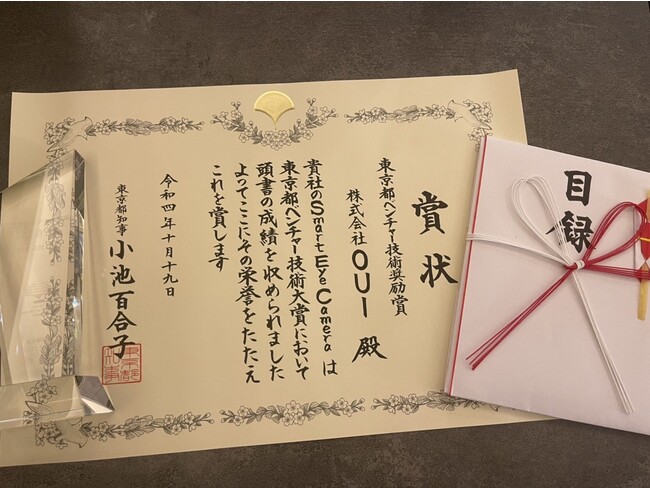 賞状
東京都ベンチャー技術奨励賞
株式会社OUI 殿
貴社のSmart Eye Camera は
東京都ベンチャー技術大賞において
頭書の成績を収められました
よってここにその栄誉をたたえ
これを賞します
令和四年十月十九日
東京都知事 小池百合子
東京都知事
目録